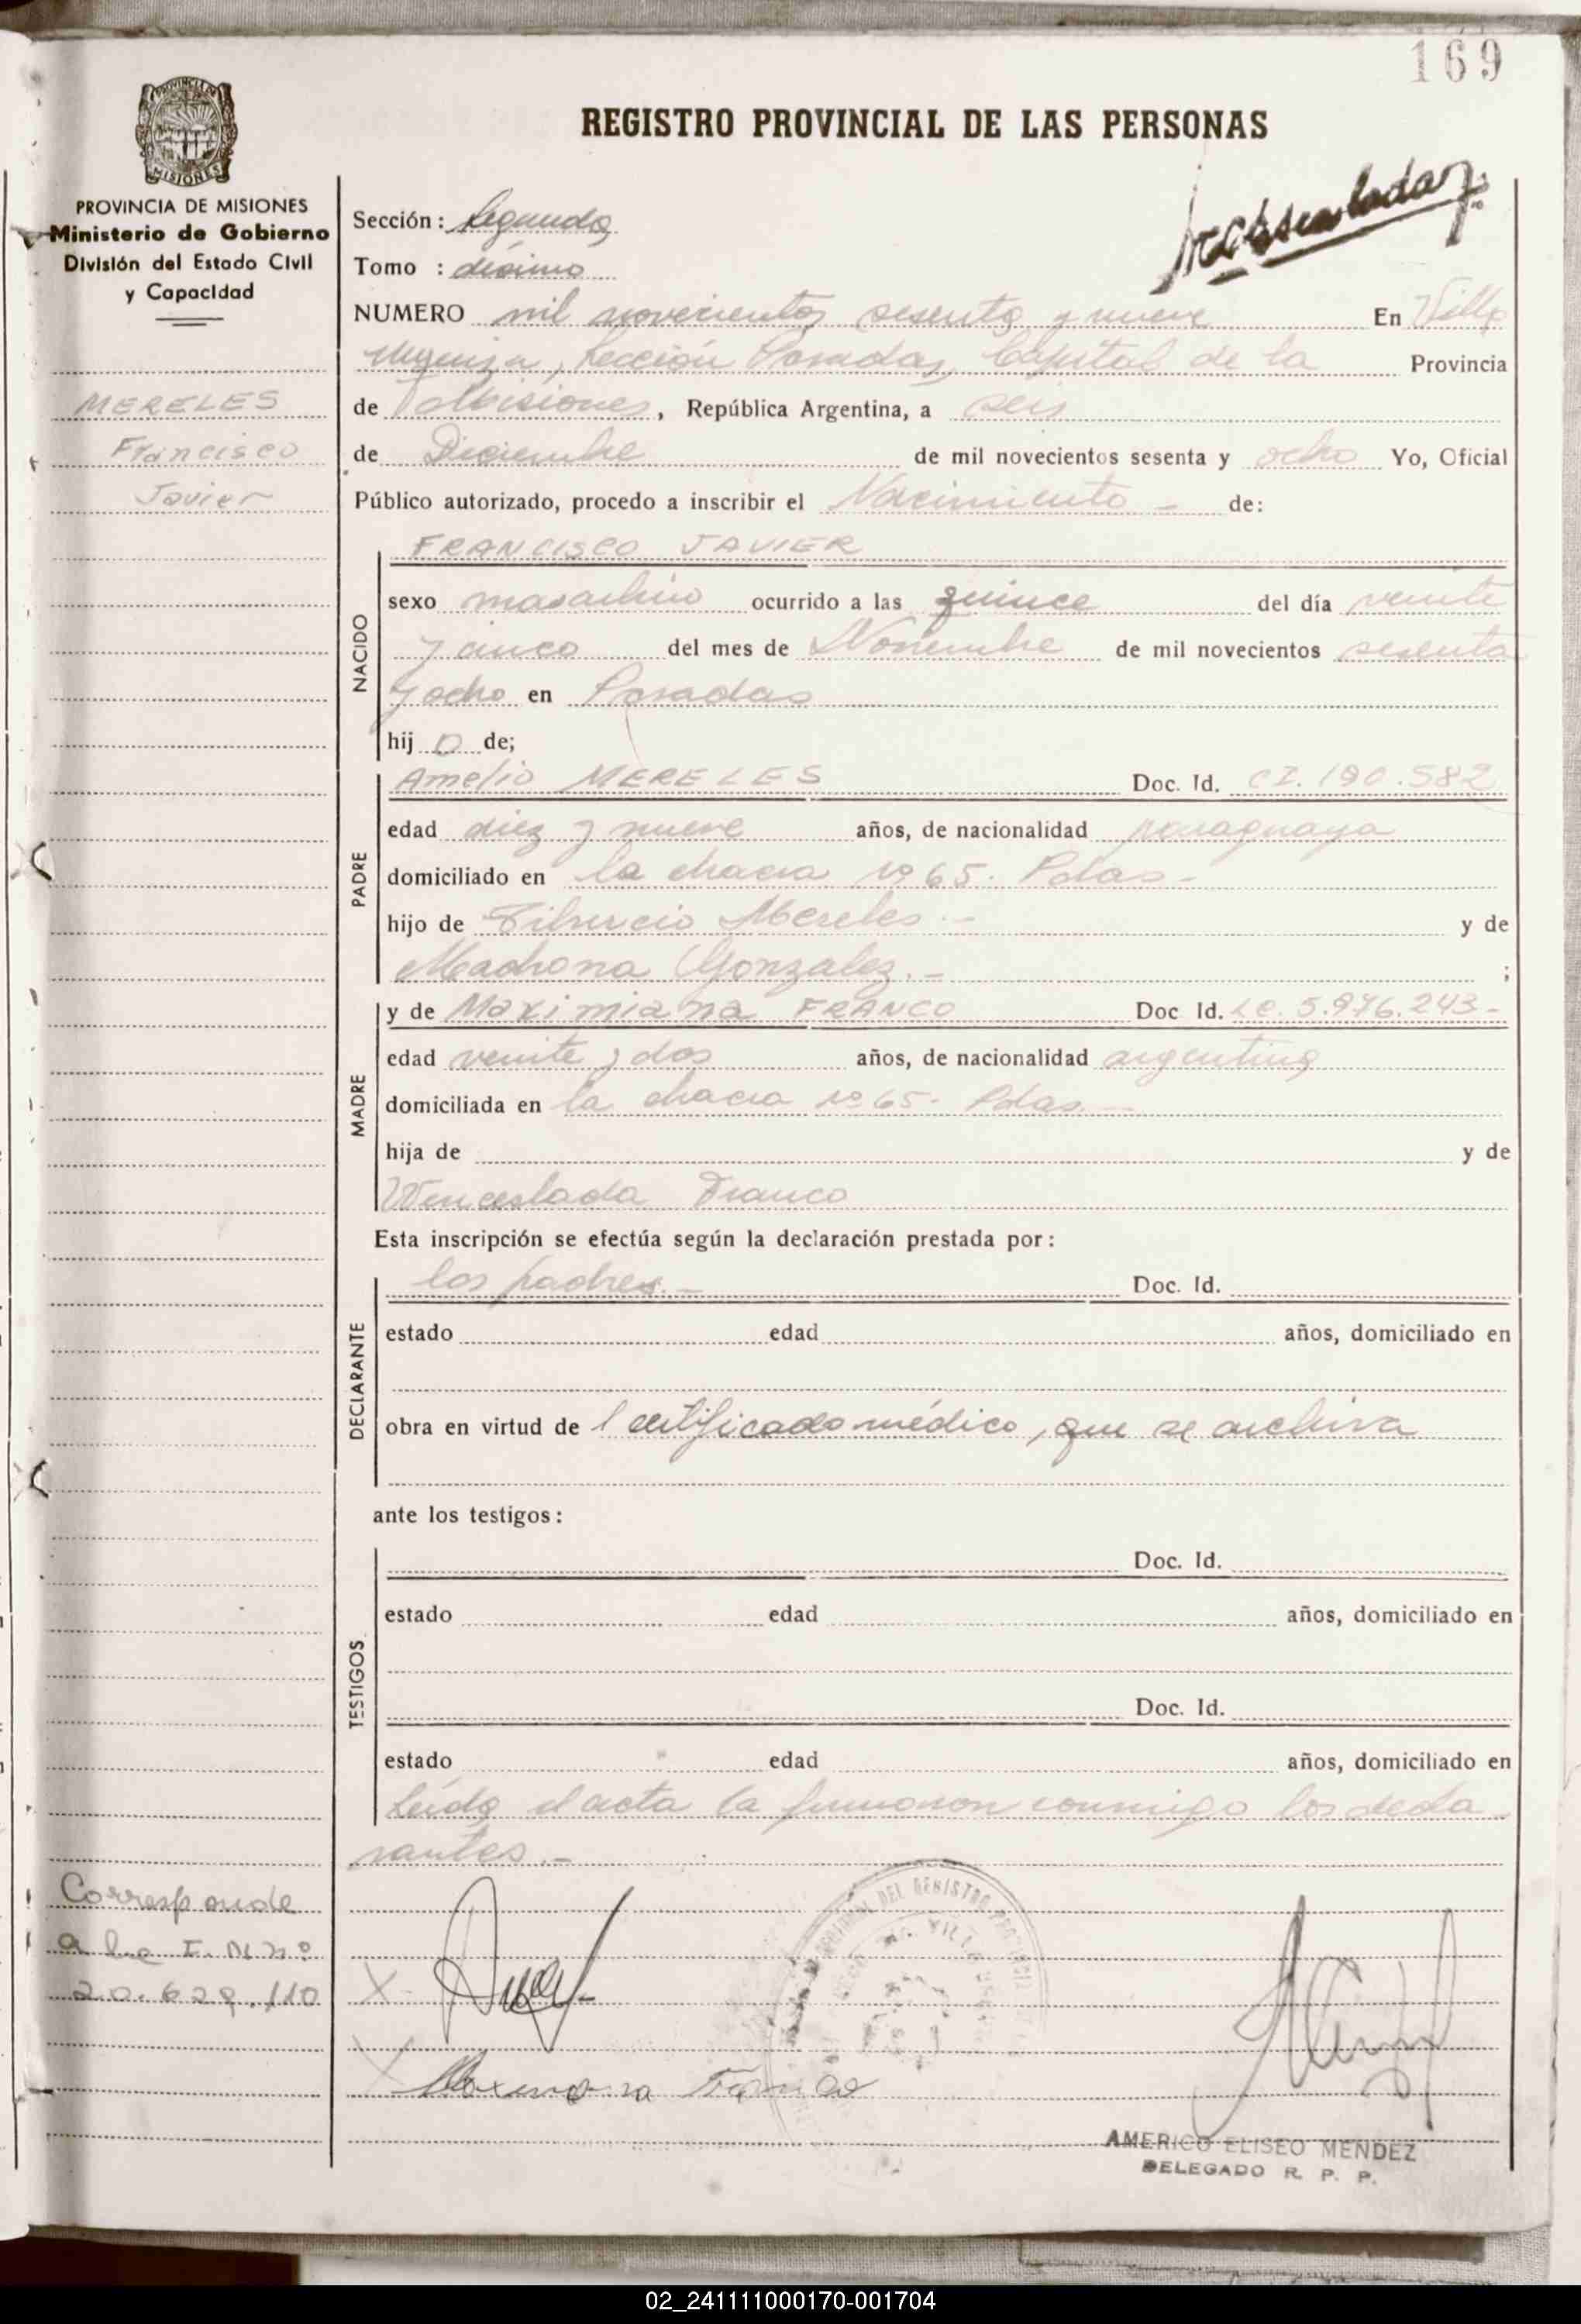 169
REGISTRO PROVINCIAL DE LAS PERSONAS
PROVINCIA DE MISIONES
Ministerio de Gobierno
División del Estado Civil
y Capacidad
MERELES
Francisco
Javier
Sección: Segunda
Tomo : décimo
NUMERO mil novecientos sesenta y nueve En Villa
Urquiza, Sección Posadas, Capital de la Provincia
de Misiones, República Argentina, a seis
de Diciembre de mil novecientos sesenta y ocho Yo, Oficial
Público autorizado, procedo a inscribir el Nacimiento - de:
FRANCISCO JAVIER
NACIDO
sexo masculino ocurrido a las quince del día veinte
y cinco del mes de Noviembre de mil novecientos sesenta
y ocho en Posadas
hij o de;
PADRE
Amelio MERELES Doc. Id. CI. 190.582
edad diez y nueve años, de nacionalidad paraguaya
domiciliado en la chacra nº 65. Pdas-
hijo de Tiburcio Mereles.- y de
Machona Gonzalez.- ;
MADRE
y de Maximiana FRANCO Doc Id. LC. 5.976.243-
edad veinte y dos años, de nacionalidad argentina
domiciliada en la chacra nº 65- Pdas.-
hija de y de
Wenceslada Franco
Esta inscripción se efectúa según la declaración prestada por:
DECLARANTE
los padres.- Doc. Id.
estado edad años, domiciliado en
obra en virtud de l certificado médico, que se archiva
ante los testigos:
TESTIGOS
Doc. Id.
estado edad años, domiciliado en
Doc. Id.
estado edad años, domiciliado en
Leída el acta la firmaron conmigo los decla
rantes.-
Corresponde
a la I. M nº
20.629.110
X
X
Franco
AMERICO ELISEO MENDEZ
DELEGADO R. P. P.
02_241111000170-001704